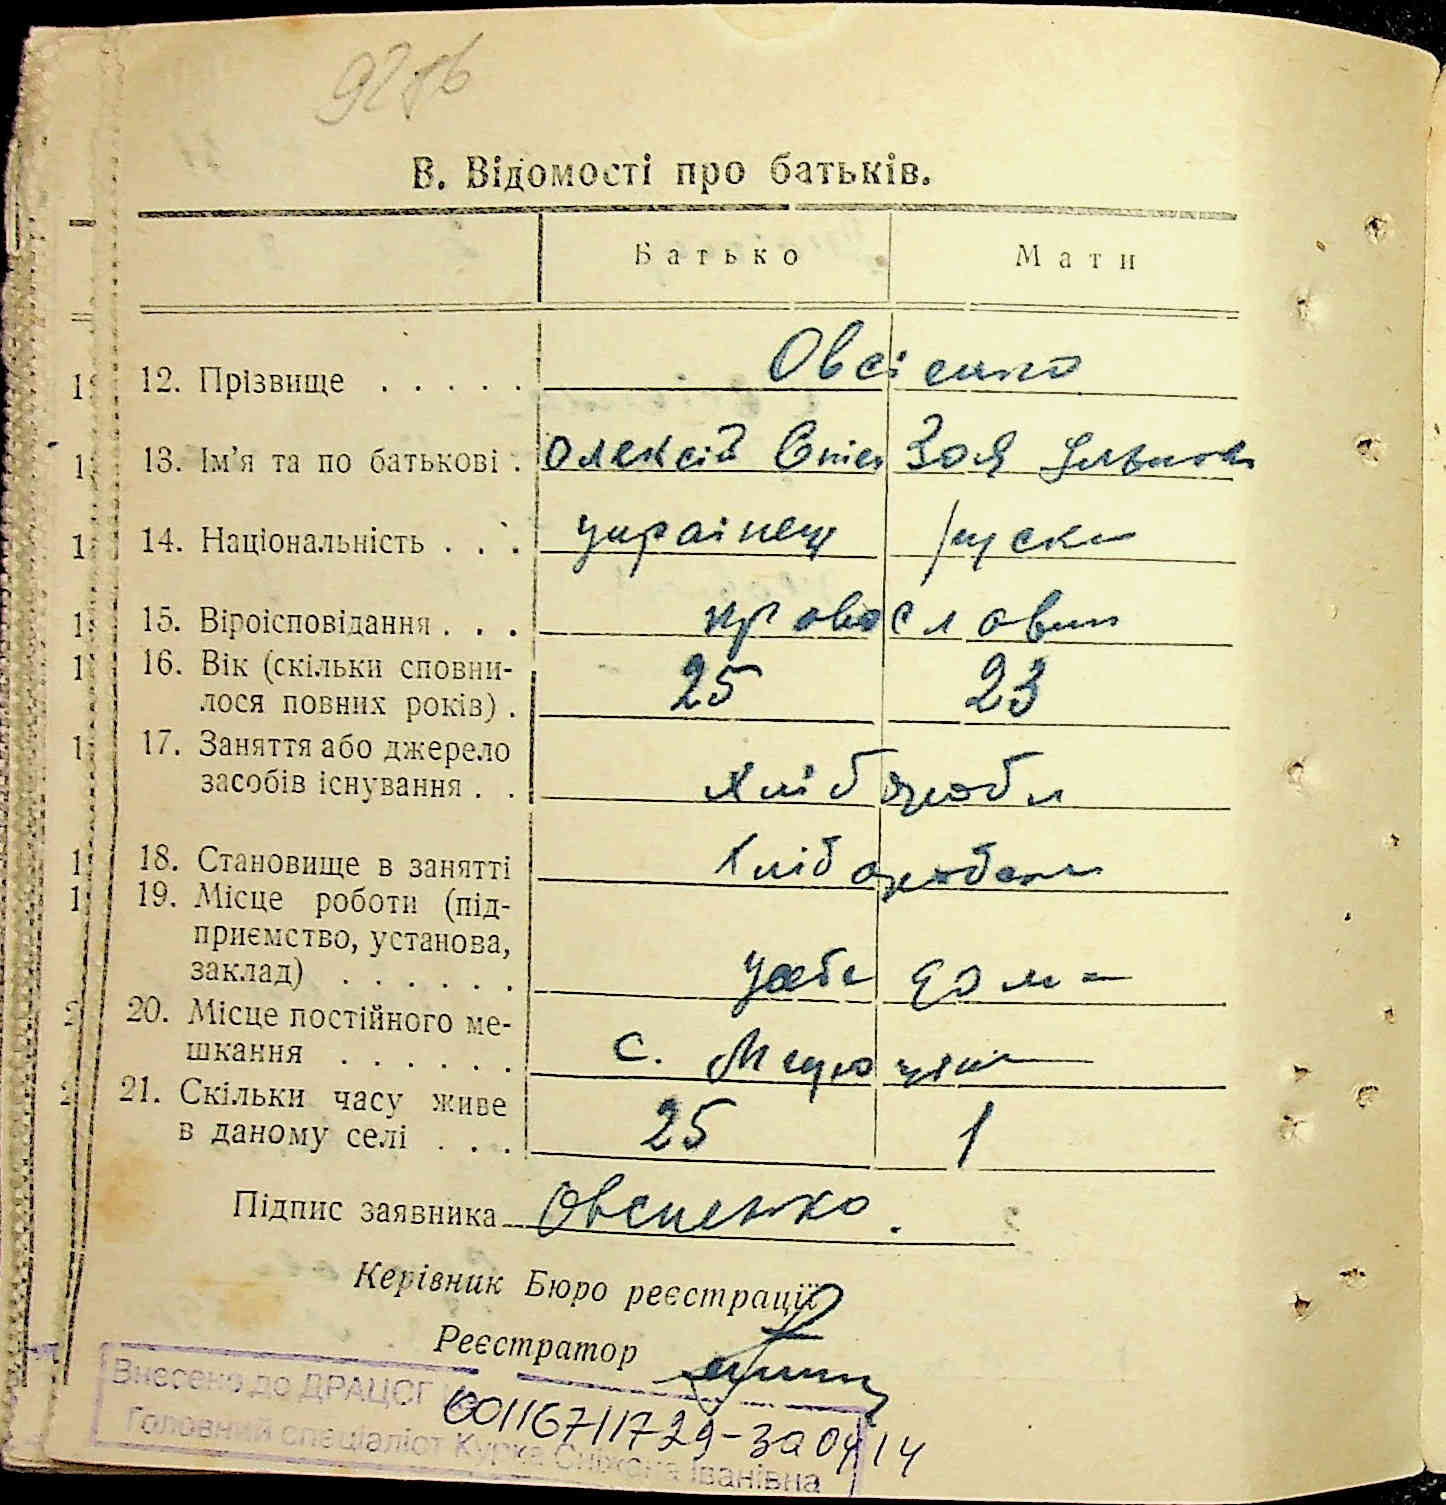 92
В. Відомості про батьків.
Батько Мати
12. Прізвище . . . . . Овсієнко
13. Ім'я та по батькові . Олексій Степ Зоя
14. Національність . . . українец руска
15. Віроісповідання . . . православн
16. Вік (скільки сповни-
лося повних років) . 25 23
17. Заняття або джерело
засобів існування . . хлібороби
18. Становище в занятті хлібороб
19. Місце роботи (під-
приємство, установа,
заклад) . . . . . . у себе дома
20. Місце постійного ме-
шкання . . . . . . с.
21. Скільки часу живе
в даному селі . . . 25 1
Підпис заявника Овсиенко.
Керівник Бюро реєстрації
Реєстратор
Внесено до ДРАЦСГ
00116711729-за 04 14
Головний спеціаліст Курка Сніжана Іванівна